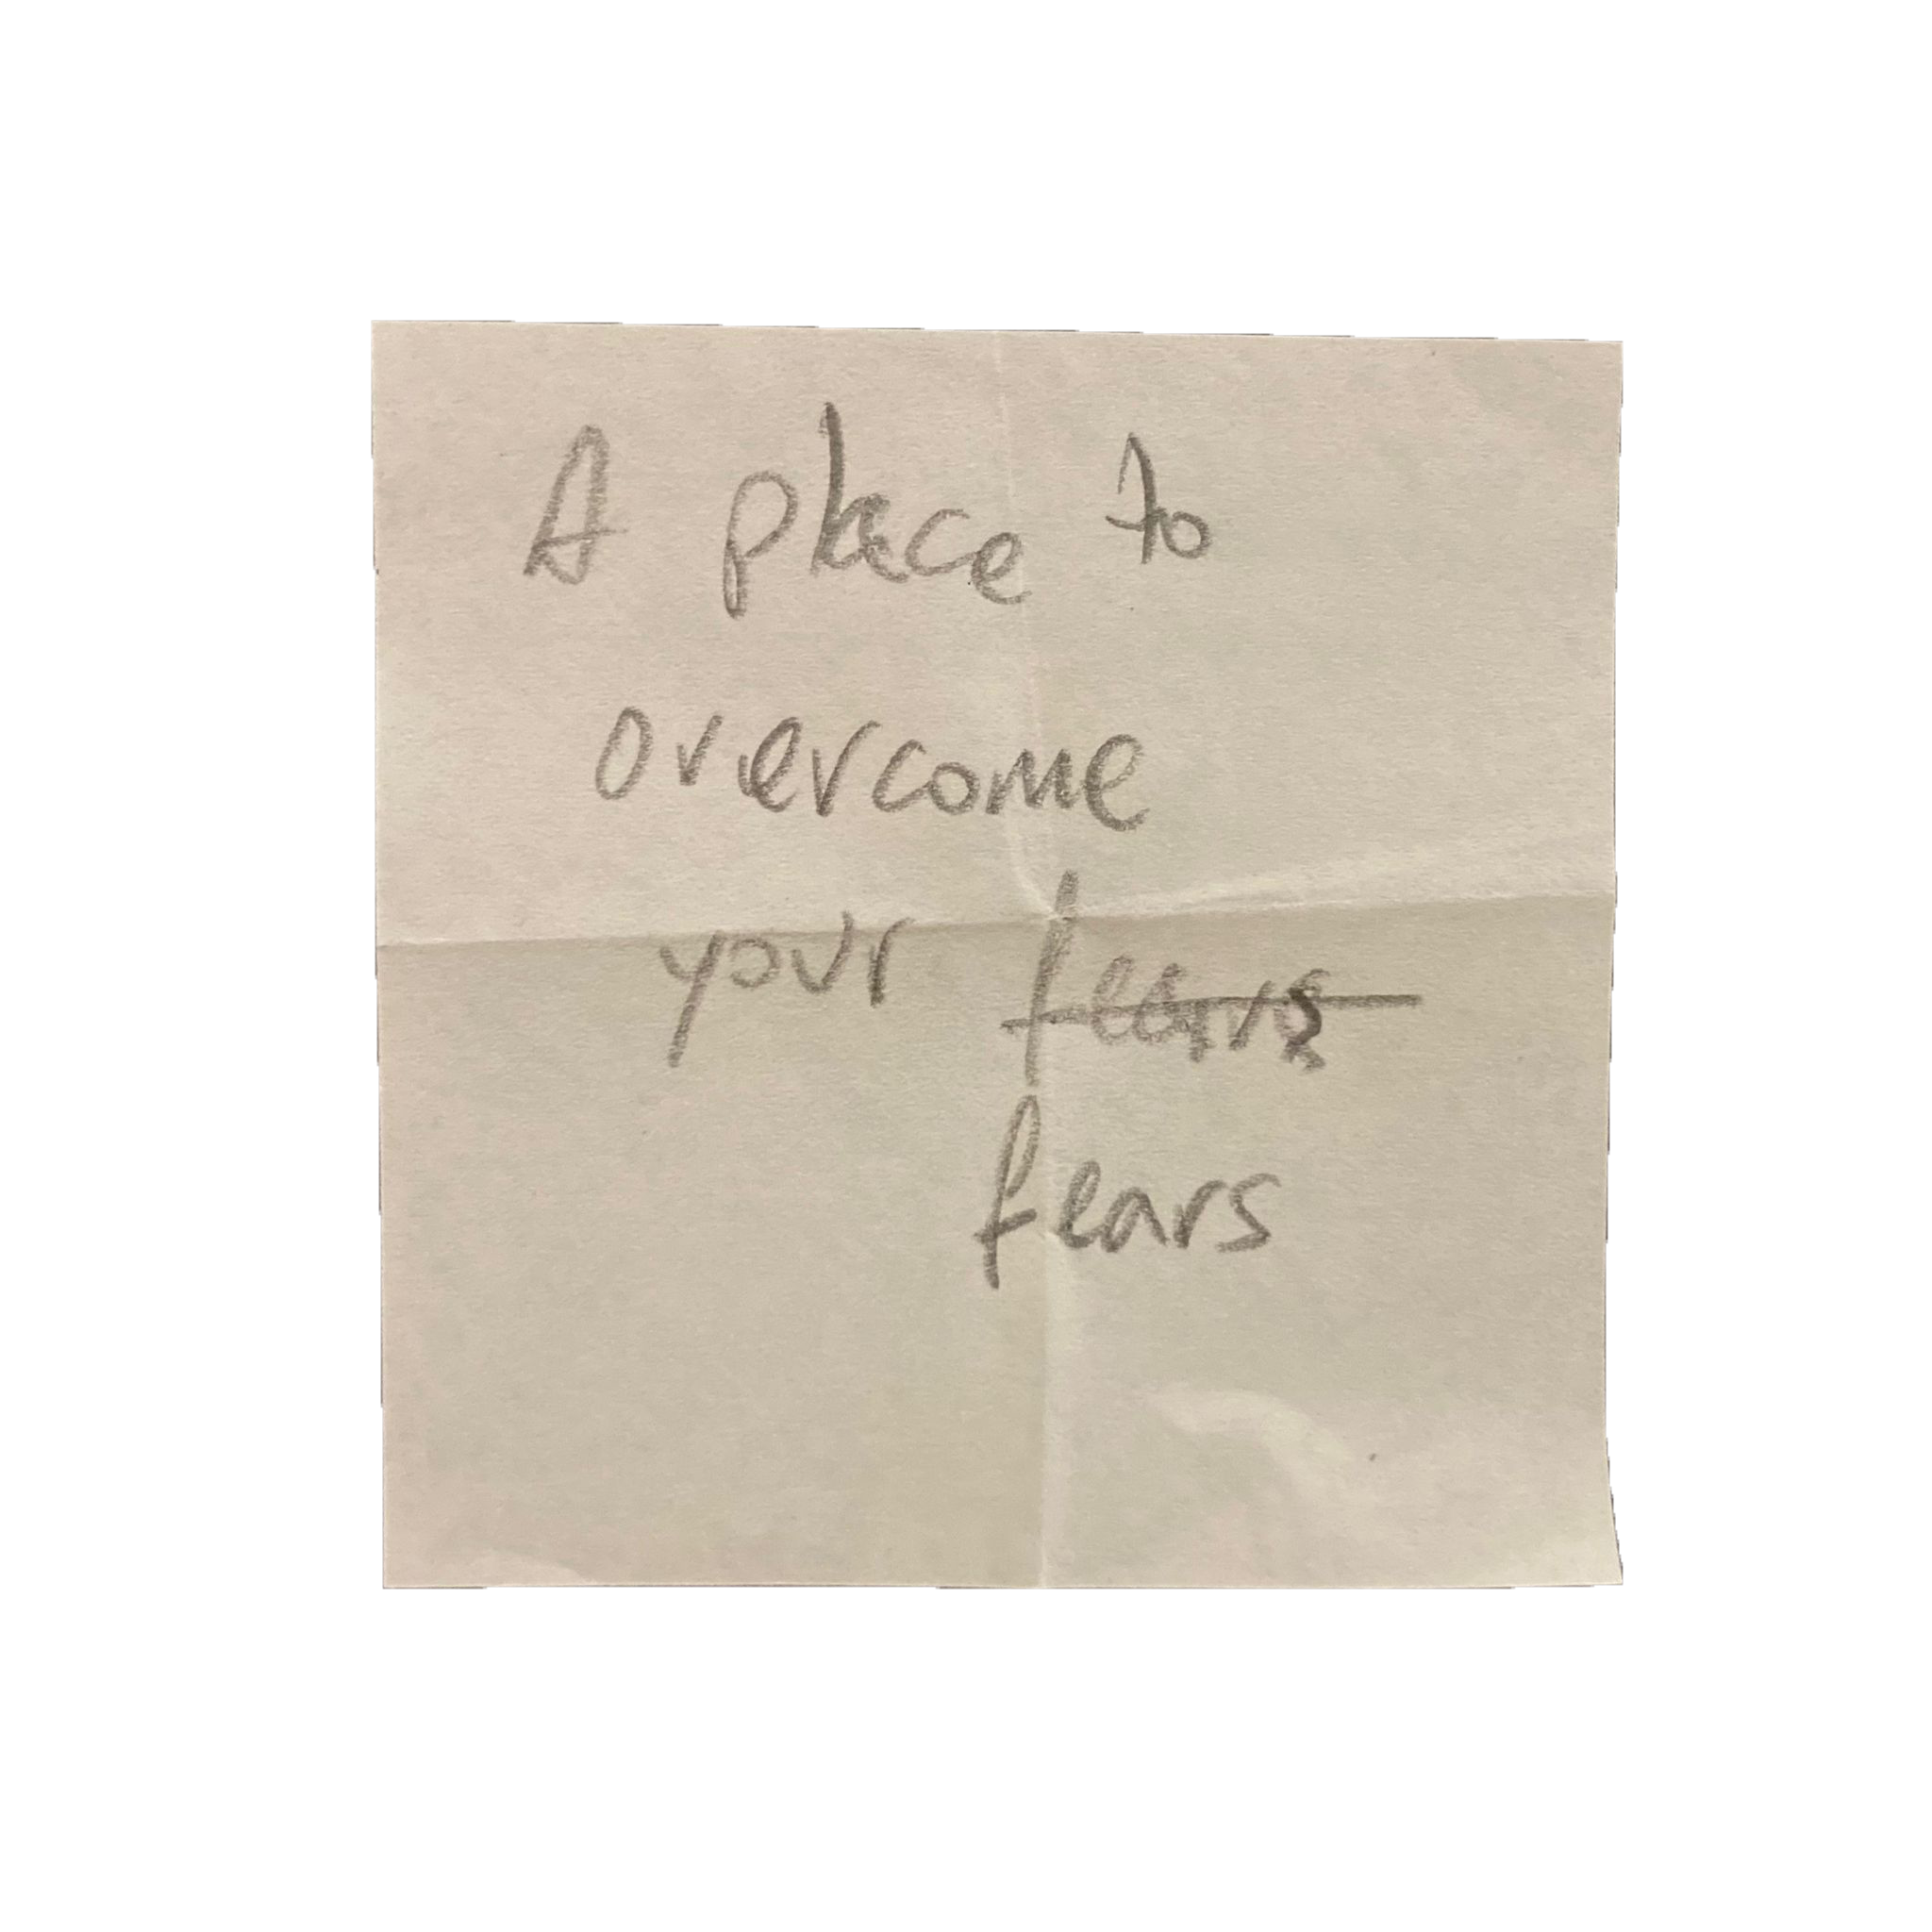 A place to
overcome
your fears
fears